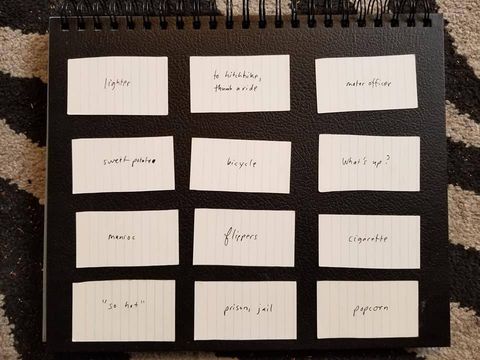 lighter
to hitchhike,
thumb a ride
motor officer
sweet potato
bicycle
What's up?
manioc
flippers
cigarette
"so hot"
prison, jail
popcorn